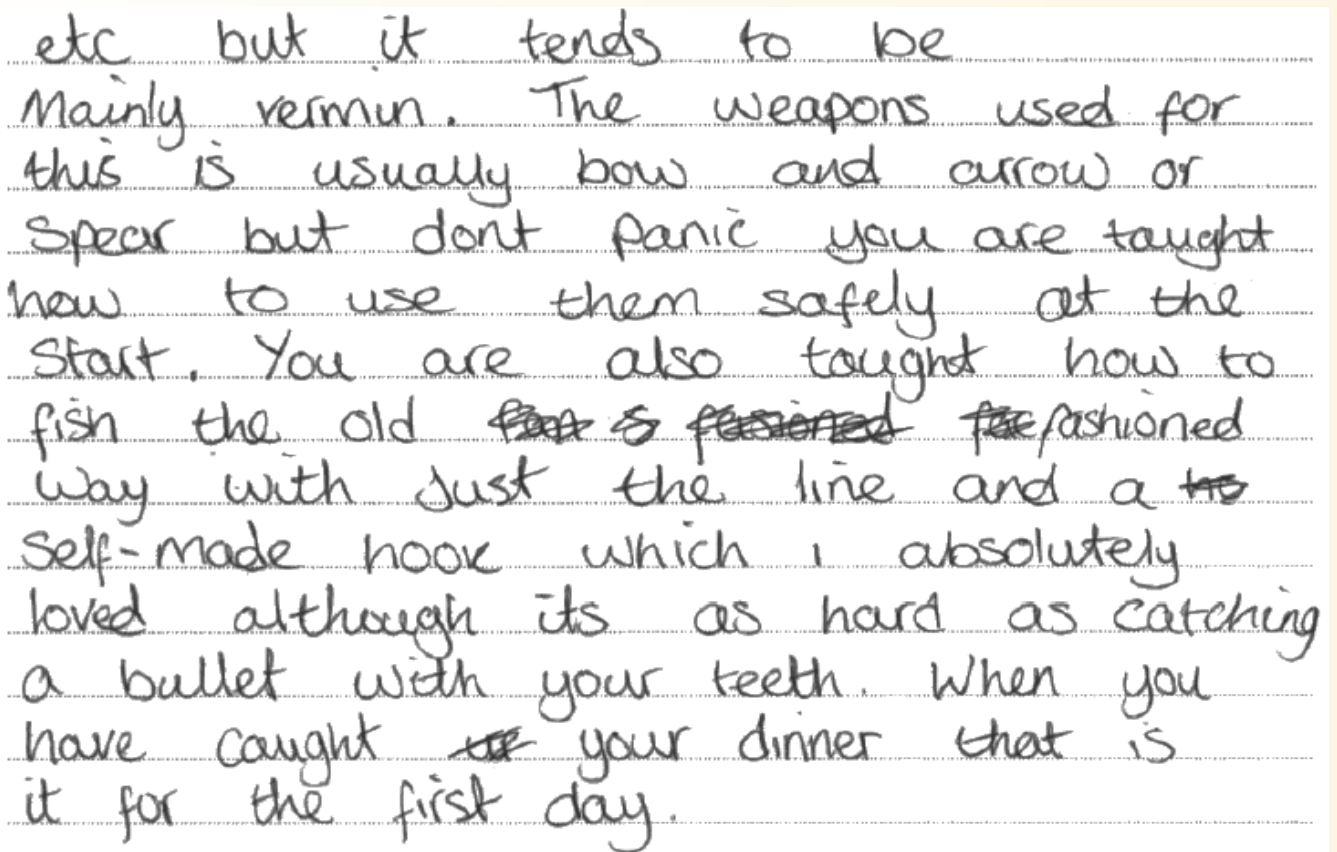 etc but it tends to be
Mainly vermin. The weapons used for
this is usually bow and arrow or
Spear but dont panic you are taught
how to use them safely at the
Start. You are also taught how to
fish the old fashioned
way with just the line and a
self-made hook which i absolutely
loved although its as hard as catching
a bullet with your teeth. When you
have caught your dinner that is
it for the first day.